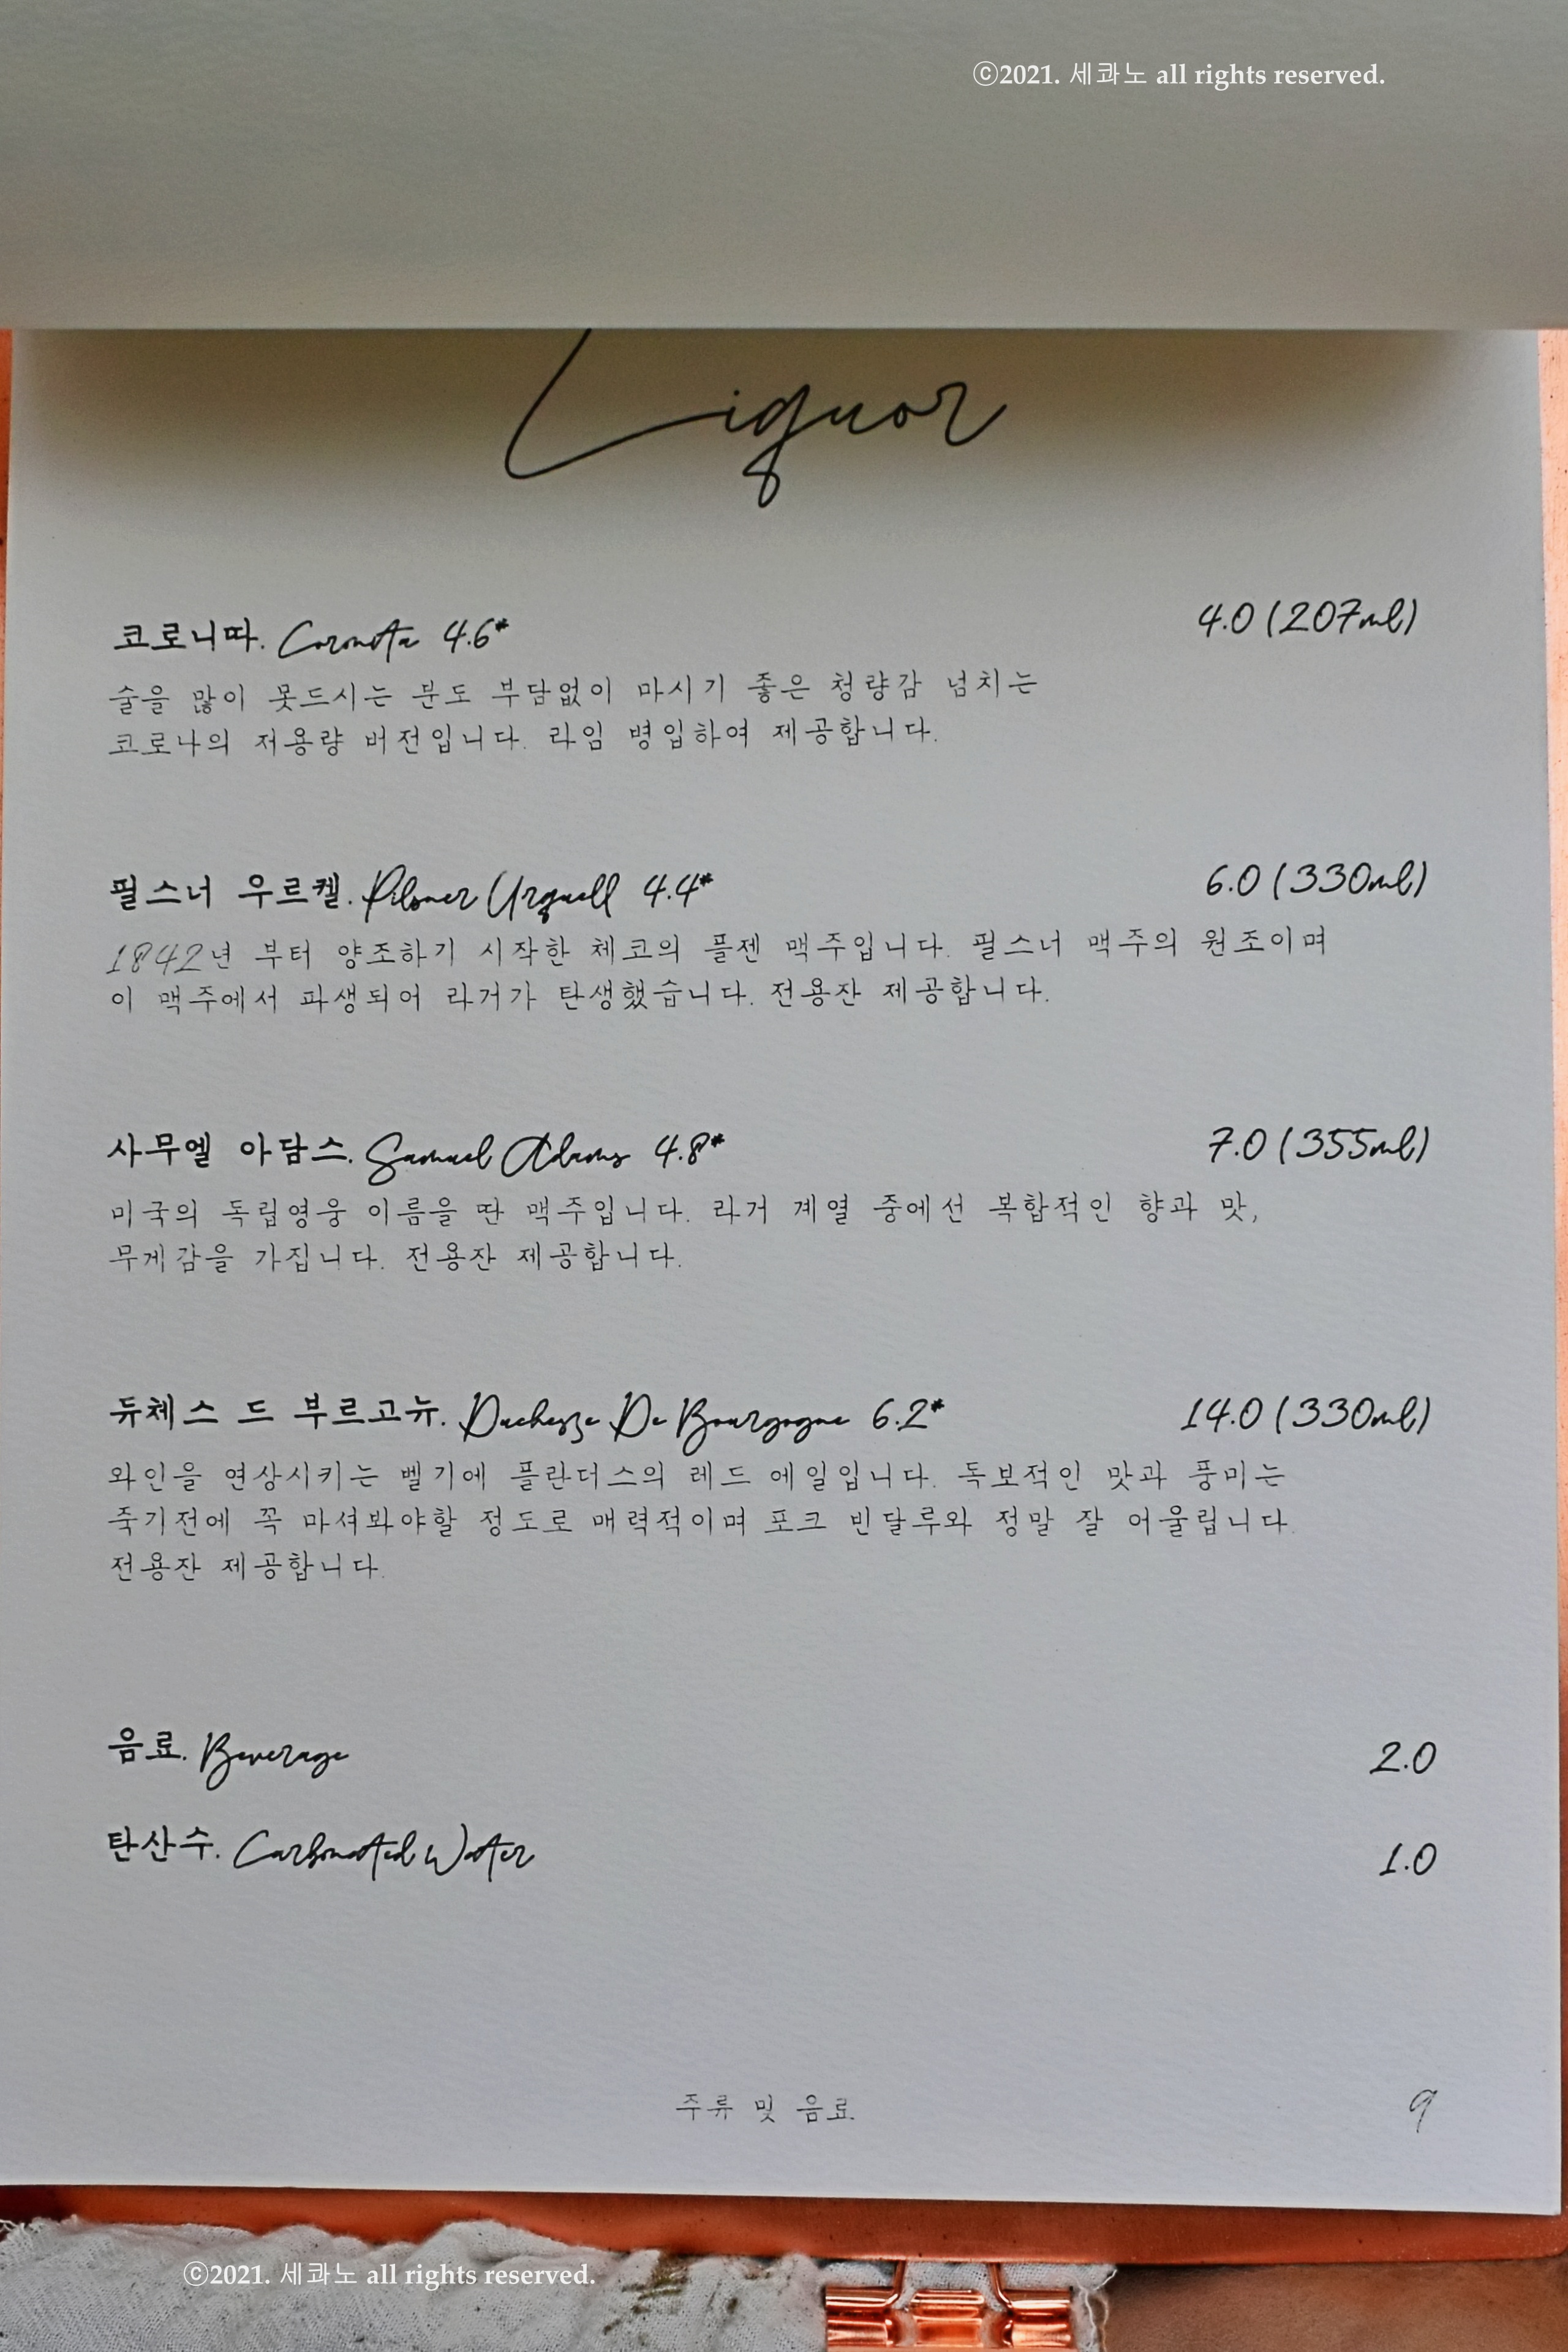 ⓒ2021. 세콰노 all rights reserved.
Liquor
코로니따. Coronita 4.6* 4.0 (207ml)
술을 많이 못드시는 분도 부담없이 마시기 좋은 청량감 넘치는
코로나의 저용량 버전입니다. 라임 병입하여 제공합니다.
필스너 우르켈. Pilsner Urquell 4.4* 6.0 (330ml)
1842년 부터 양조하기 시작한 체코의 플젠 맥주입니다. 필스너 맥주의 원조이며
이 맥주에서 파생되어 라거가 탄생했습니다. 전용잔 제공합니다.
사무엘 아담스. Samuel Adams 4.8* 7.0 (355ml)
미국의 독립영웅 이름을 딴 맥주입니다. 라거 계열 중에선 복합적인 향과 맛,
무게감을 가집니다. 전용잔 제공합니다.
듀체스 드 부르고뉴. Duchesse De Bourgogne 6.2* 14.0 (330ml)
와인을 연상시키는 벨기에 플란더스의 레드 에일입니다. 독보적인 맛과 풍미는
죽기전에 꼭 마셔봐야할 정도로 매력적이며 포크 빈달루와 정말 잘 어울립니다.
전용잔 제공합니다.
음료. Beverage 2.0
탄산수. Carbonated Water 1.0
주류 및 음료 9
ⓒ2021. 세콰노 all rights reserved.